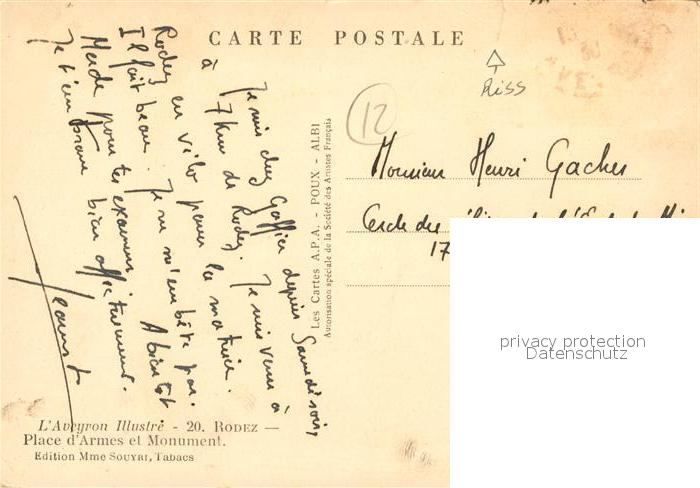 CARTE POSTALE
Riss
12
Je suis chez Goffier depuis Samedi soir,
à 7 km de Rodez. Je suis venu à
Rodez en vélo pour la matinée.
Il fait beau. Je ne m'embête pas.
Merde pour tes examens. A bientôt
Je t'embrasse bien affectueusement.
Les Cartes A.P.A. - POUX - ALBI
Autorisation spéciale de la Société des Artistes Français
Monsieur Henri Gaches
Cercle des
17
privacy protection
Datenschutz
L'Aveyron Illustré - 20. RODEZ —
Place d'Armes et Monument.
Edition Mme SOUYRI, Tabacs